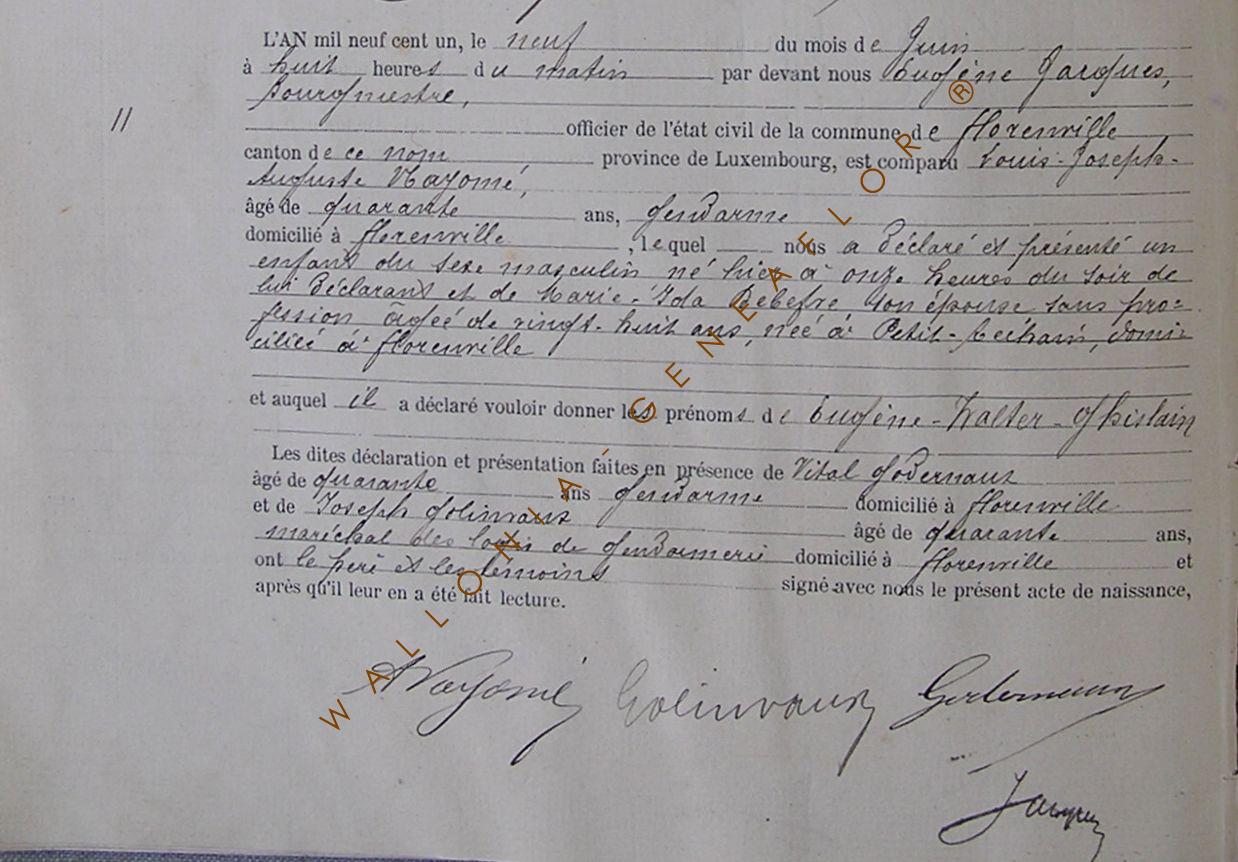 L'AN mil neuf cent un, le neuf du mois de Juin
à huit heures du matin par devant nous Eugène Jacques,
bourgmestre,
11
officier de l'état civil de la commune de Florenville
canton de ce nom province de Luxembourg, est comparu Louis-Joseph-
Auguste
âgé de quarante ans, Gendarme
domicilié à Florenville, lequel nous a déclaré et présenté un
enfant du sexe masculin né hier à onze heures du soir de
lui déclarant et de Marie-Ida son épouse sans pro=
fession âgée de vingt-huit ans, née à Petit-Rechain, domi-
ciliée à Florenville
et auquel il a déclaré vouloir donner les prénoms de Eugène-Walter-Ghislain
Les dites déclaration et présentation faites en présence de Vital Godernaux
âgé de quarante ans Gendarme domicilié à Florenville
et de Joseph Golinvaux âgé de quarante ans,
maréchal des logis de gendarmerie domicilié à Florenville et
ont le père et les témoins signé avec nous le présent acte de naissance,
après qu'il leur en a été fait lecture.
Golinvaux
Jacques
WALLONIA-GENEAFLOR®